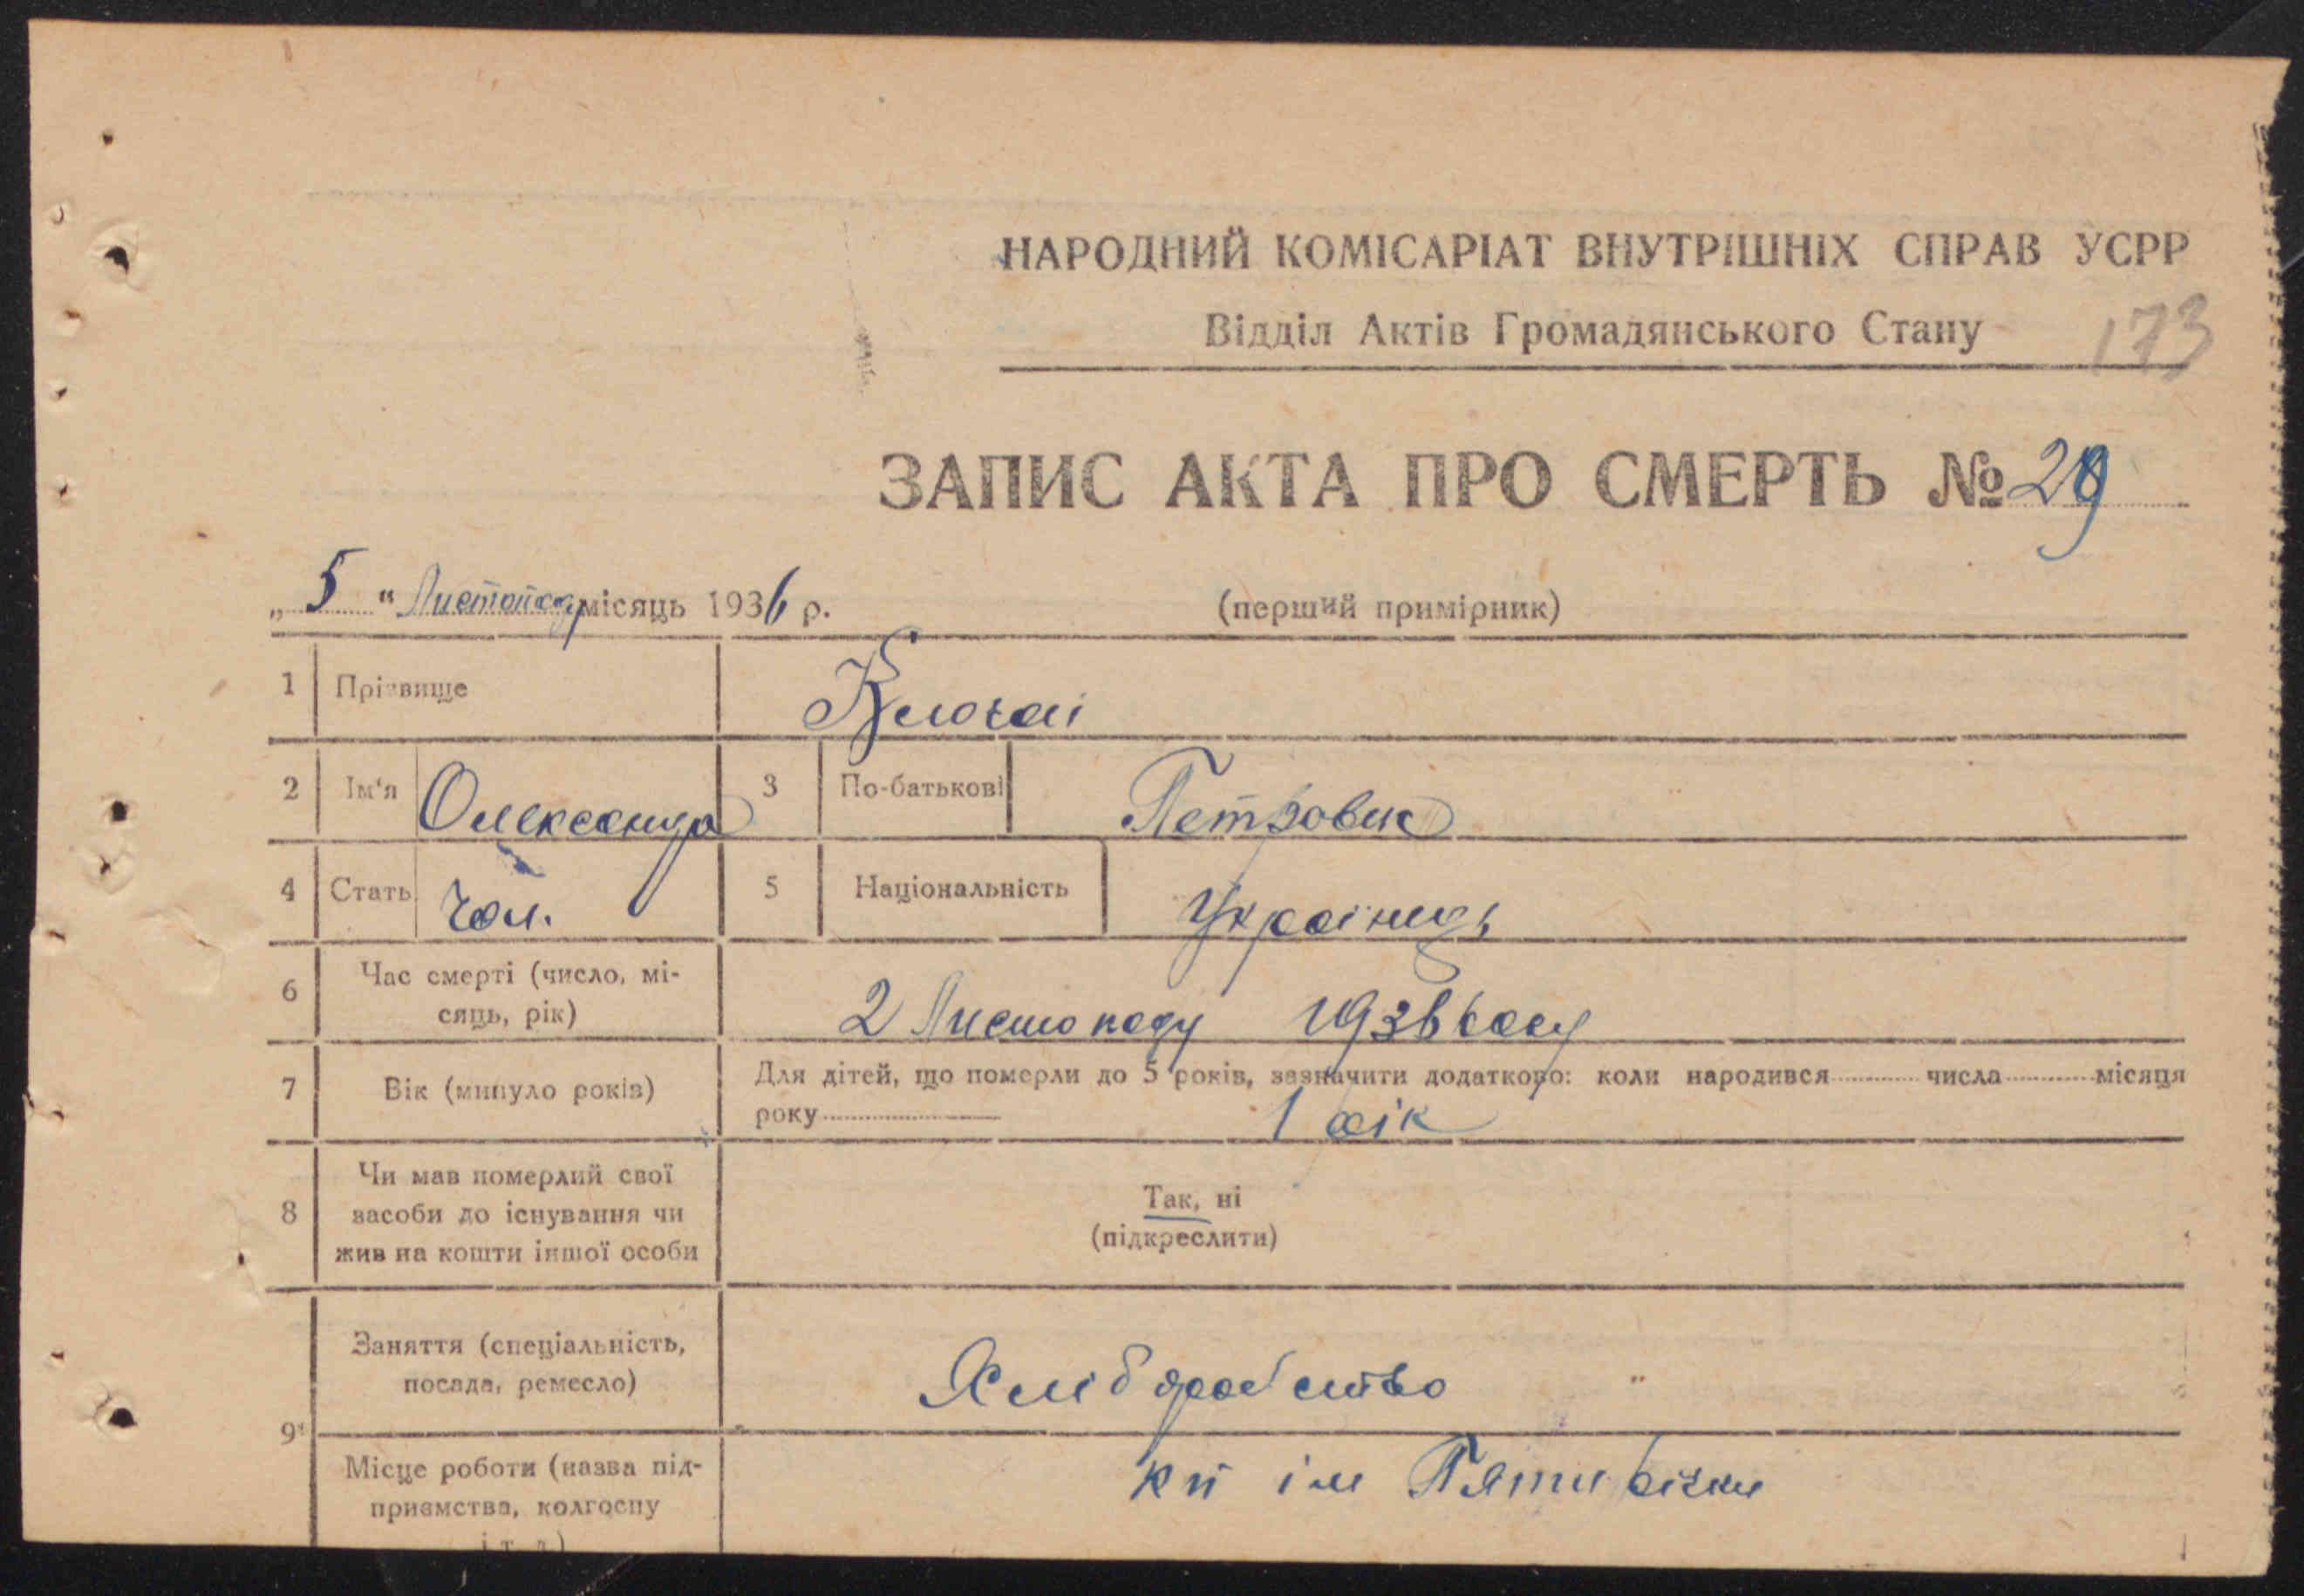 НАРОДНИЙ КОМІСАРІАТ ВНУТРІШНІХ СПРАВ УСРР
Відділ Актів Громадянського Стану 173
ЗАПИС АКТА ПРО СМЕРТЬ № 29
„ 5 “ Листопад місяць 1936 р. (перший примірник)
1 Прізвище
2 Ім'я Олександр 3 По-батькові Петрович
4 Стать Чол. 5 Національність Українець
6 Час смерті (число, мі-
сяць, рік) 2 Листопаду 1936 року
7 Вік (минуло років) Для дітей, що померли до 5 років, зазначити додатково: коли народився числа місяця
року 1 рік
8 Чи мав померлий свої
засоби до існування чи
жив на кошти іншої особи
Так, ні
(підкреслити)
9 Заняття (спеціальність,
посада, ремесло) Хліборобство
Місце роботи (назва під-
приємства, колгоспу
і т. д.)
ім Пятирічки